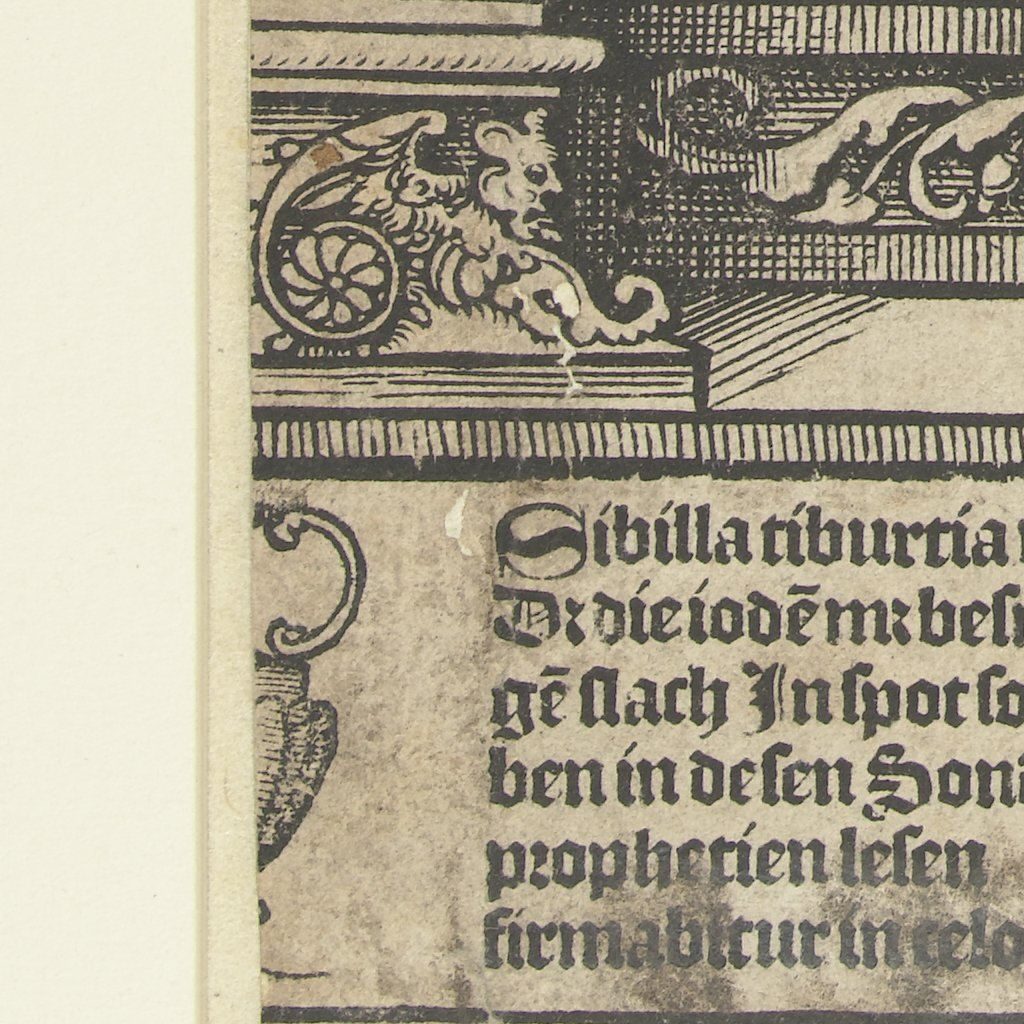 Sibilla tiburtia
Dꝛ die iodē mꝛ besn
gē slach In spot so
ben in desen Son
prophetien lesen
firmabitur in celo